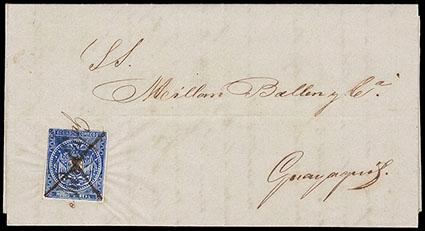 SS.
Millan Ballen y Ca.
Guayaquil.